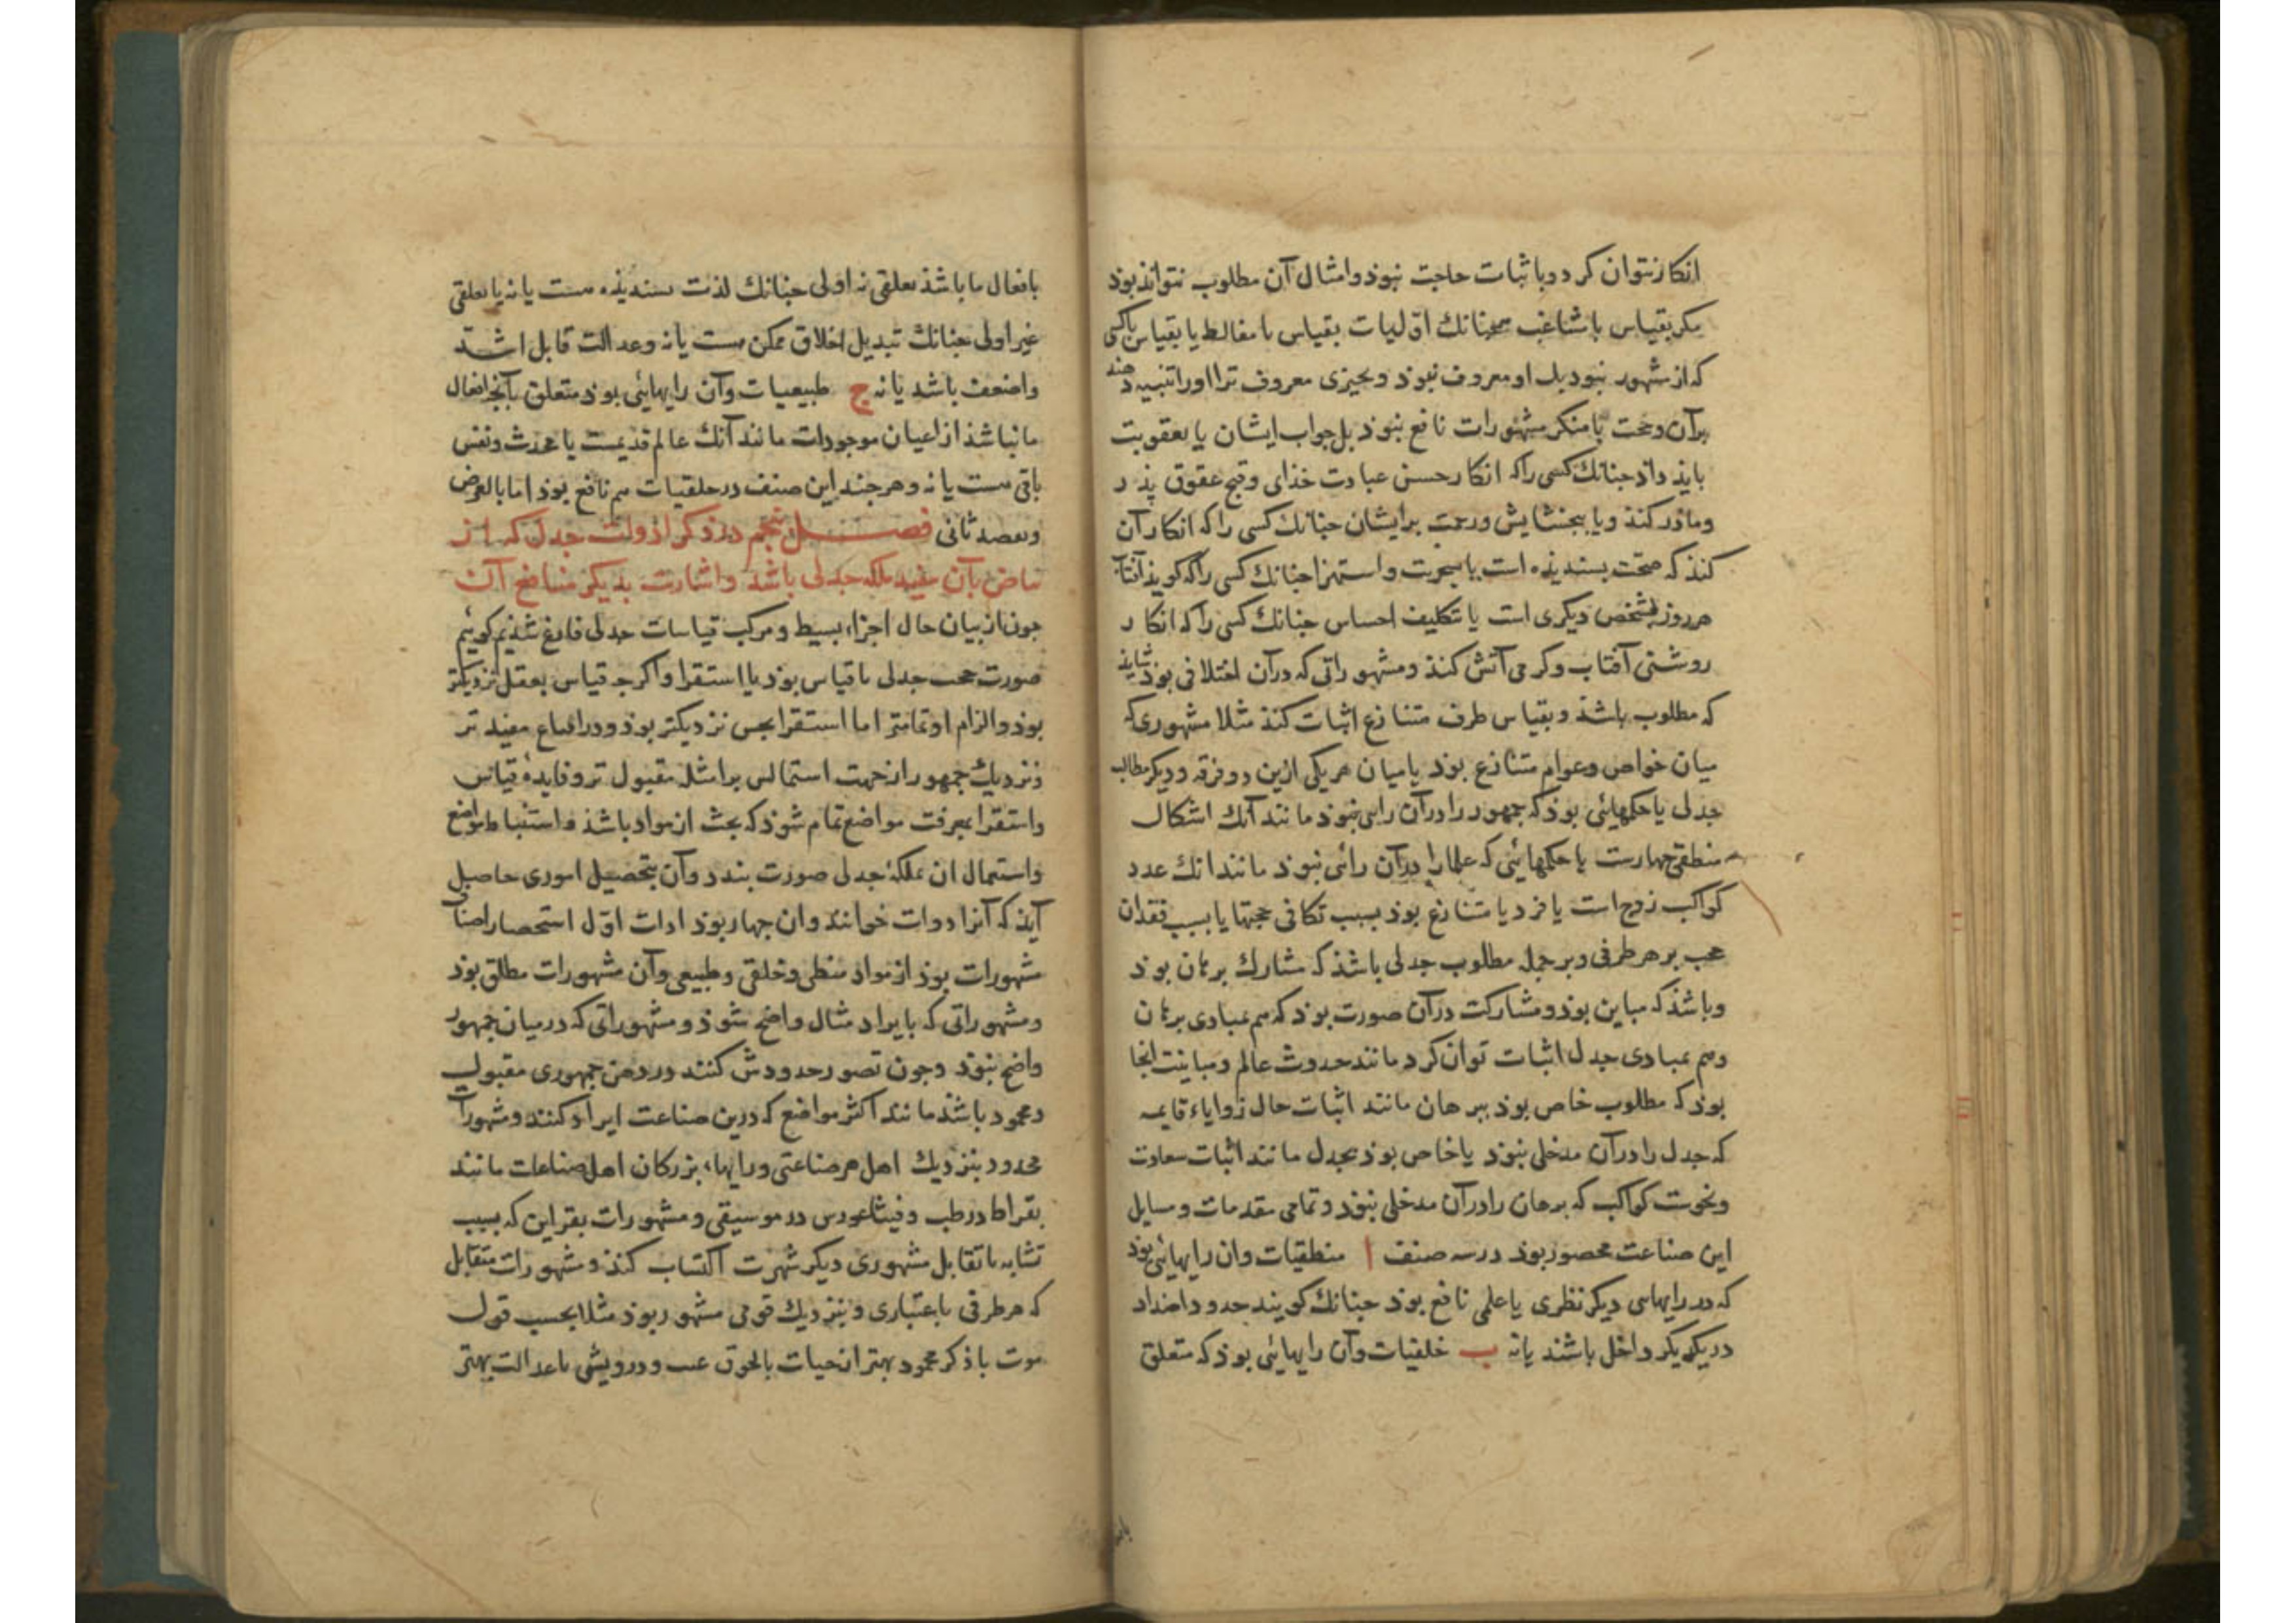 انکار نتوان کرد و باثبات حاجت نبوذ و امثال آن مطلوب نتواند بوذ
مکر بقیاس با مشاغب چنانک اوّلیات بقیاس با مغالط یا بقیاس با کسی
که از مشهور نبوذ بل او معروف نبوذ و بجیزی معروف تر او را تنبیه دهند
بر آن و حجت با منکر مشهورات نافع نبوذ بل جواب ایشان یا بعقوبت
بایذ داذ جنانک کسی را که انکار حسن عبادت خذای و قبح عقوق پذر
و ماذر کنذ و یا ببخشایش و رحمت بر ایشان جنانک کسی را که انکار آن
کنذ که صحت بسندیذه است یا بسخریت و استهزا جنانک کسی را که کویذ آفتاب
هر روز شخص دیکری است یا بتکلیف احساس جنانک کسی را که انکار
روشنی آفتاب و کرمی آتش کنذ و مشهوراتی که در آن اختلافی بوذ شایذ
که مطلوب باشذ و بقیاس طرف متنازع اثبات کنذ مثلا مشهوری که
میان خواص و عوام متنازع بوذ یا میان هر یکی ازین دو فرقه و دیکر مطالب
جدلی یا حکمهائی بوذ که جمهور را در آن رایی نبوذ مانند آنک اشکال
منطقی جهارست یا حکمهائی که علما را در آن رائی نبوذ مانند انک عدد
کواکب زوج است یا فرد یا متنازع بوذ بسبب تکافی حجتها یا بسبب فقدان
حجت بر هر طرفی و بر جمله مطلوب جدلی باشذ که مشارک برهان بوذ
و باشذ که مباین بوذ و مشارکت در آن صورت بوذ که هم بمبادی برهان
و هم بمبادی جدل اثبات توان کرد مانند حدوث عالم و مباینت انجا
بوذ که مطلوب خاص بوذ ببرهان مانند اثبات حال زوایاء قایمه
که جدل را در آن مدخلی نبوذ یا خاص بوذ بجدل مانند اثبات سعادت
و نحوست کواکب که برهان را در آن مدخلی نبوذ و تمامی مقدمات و مسایل
این صناعت محصور بوذ در سه صنف ا منطقیات و ان رایهائی بوذ
که در رایهاء دیکر نظری یا علمی نافع بوذ جنانک کویند حدود اضداد
در یکدیکر داخل باشند یا نه ب خلقیات و آن رایهائی بوذ که متعلق
بافعال ما باشذ تعلقی نه اولی جنانک لذت بسندیذه هست یا نه یا تعلقی
غیر اولی جنانک تبدیل اخلاق ممکن هست یا نه و عدالت قابل اشتد
و اضعف باشد یا نه ج طبیعیات و آن رایهائی بوذ متعلق بآنج افعال
ما نباشذ از اعیان موجودات مانند آنک عالم قدیمست یا محدث و نفس
باقی هست یا نه و هر جند این صنف در خلقیات هم نافع بوذ اما بالعرض
و بقصد ثانی فصل بنجم در ذکر ادوات جدل که از
بآن مفید ملکه جدلی باشذ و اشارت بدیکر منافع آن
جون از بیان حال اجزاء بسیط و مرکب قیاسات جدلی فارغ شذیم کوئیم
صورت حجت جدلی یا قیاس بوذ یا استقرا و اکرجه قیاس بعقل نزدیکتر
بوذ و الزام او تمامتر اما استقرا بحس نزدیکتر بوذ و در اقناع مفید تر
و نزدیک جمهور از جهت اشتمالش بر امثله مقبول تر و فایدهٔ قیاس
و استقرا بمعرفت مواضع تمام شوذ که بحث از مواد باشذ و استنباط مواضع
و استعمال ان بملکهٔ جدلی صورت بندد و آن بتحصیل اموری حاصل
آیذ که آنرا ادوات خوانند و ان جهار بوذ ادات اوّل استحضار اصناف
مشهورات بوذ از مواد منطقی و خلقی و طبیعی و آن مشهورات مطلق بوذ
و مشهوراتی که بایراد مثال واضح شوذ و مشهوراتی که در میان جمهور
واضح نبوذ و جون تصور حدودش کنند در ذهن جمهوری مقبول
و محمود باشذ مانند اکثر مواضع که درین صناعت ایراد کنند و مشهورات
محدود بنزدیک اهل هر صناعتی و رایهاء بزرکان اهل صناعات مانند
بقراط در طب و فیثاغورس در موسیقی و مشهورات بقراین که بسبب
تشابه یا تقابل مشهوری دیکر شهرت اکتساب کنذ و مشهورات متقابل
که هر طرفی باعتباری و بنزدیک قومی مشهور بوذ مثلا بحسب قول
موت با ذکر محمود بهتر از حیات بالحوق عیب و درویشی با عدالت بهتر